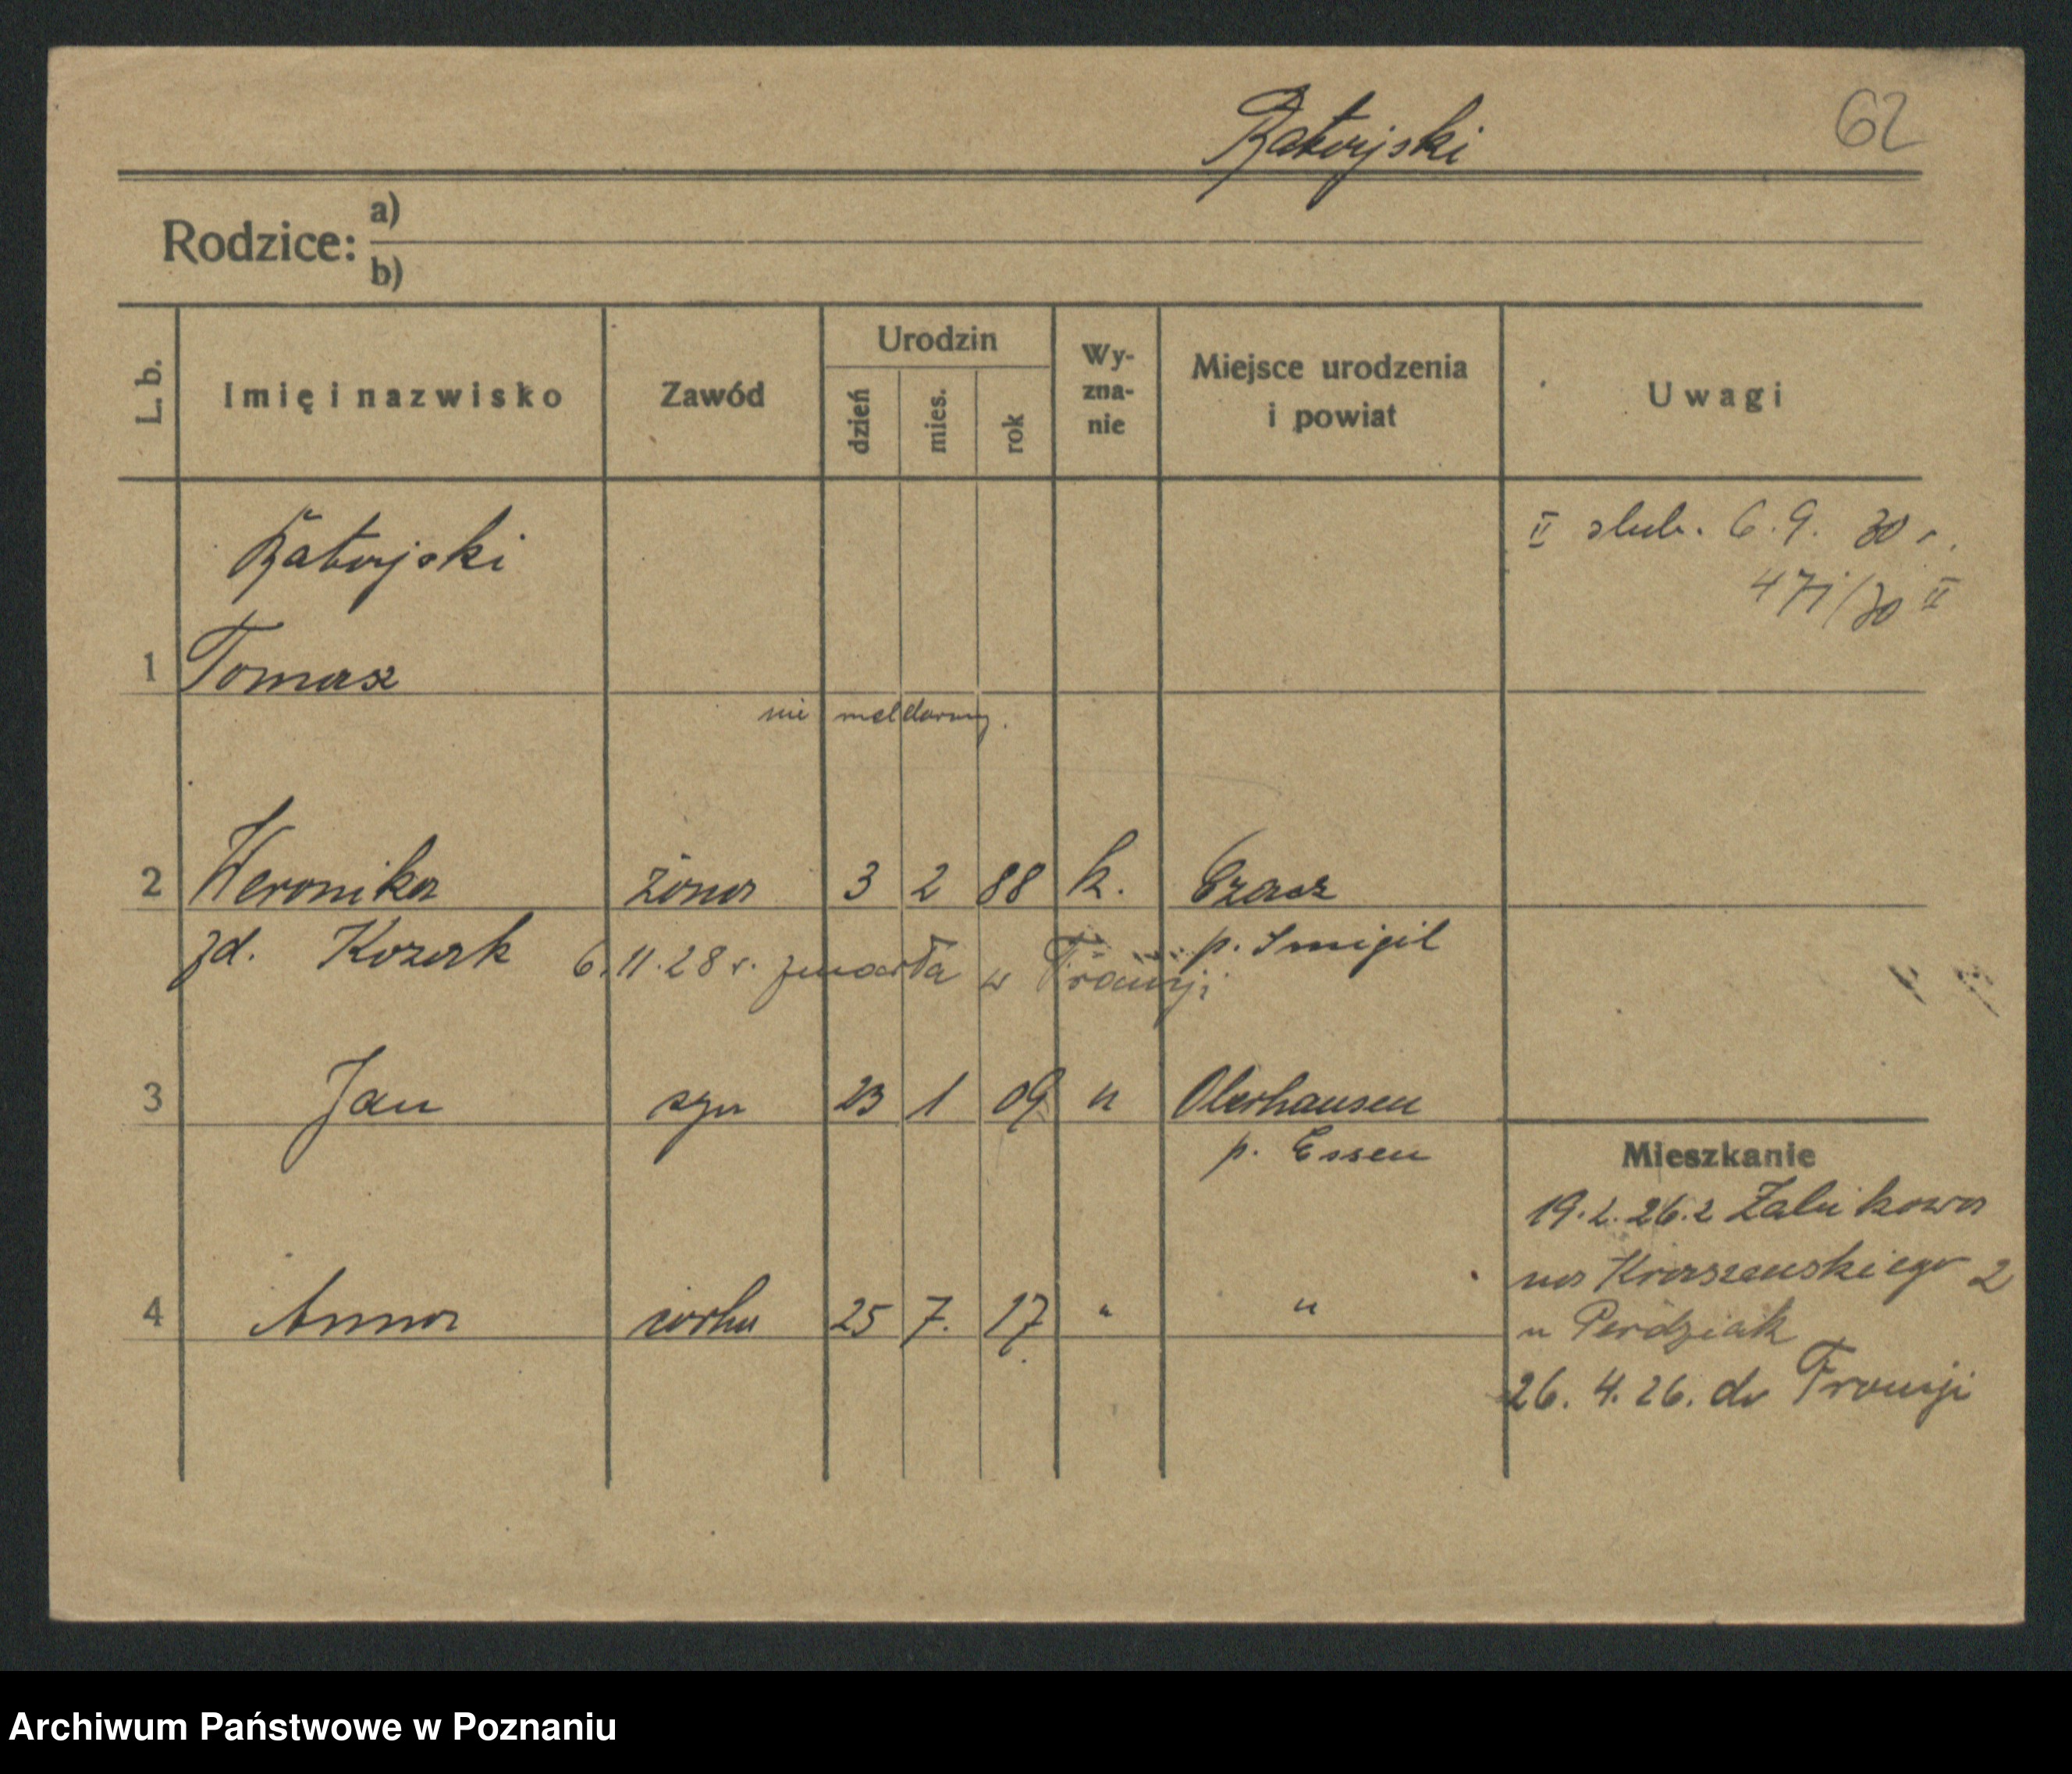 62
Rodzice: a)
b)
L. b.
Imię i nazwisko
Zawód
Urodzin
dzień
mies.
rok
Wy-
zna-
nie
Miejsce urodzenia
i powiat
Uwagi
II slub. 6. 9. 30 r.
1 Tomasz
nie meldowany.
2 Weronika żona 3 2 88 k. Czacz
zd. Kozak
p. Smigil
6. 11. 28 r. zmarła w Francji
3 Jan syn 23 1 09 " Oberhausen
p. Essen
4 Anna córka 25 7. 17 " "
Mieszkanie
19. 2. 26. z Żabikowa
na Kraszewskiego 2
u Perdziak
26. 4. 26. do Francji
Archiwum Państwowe w Poznaniu